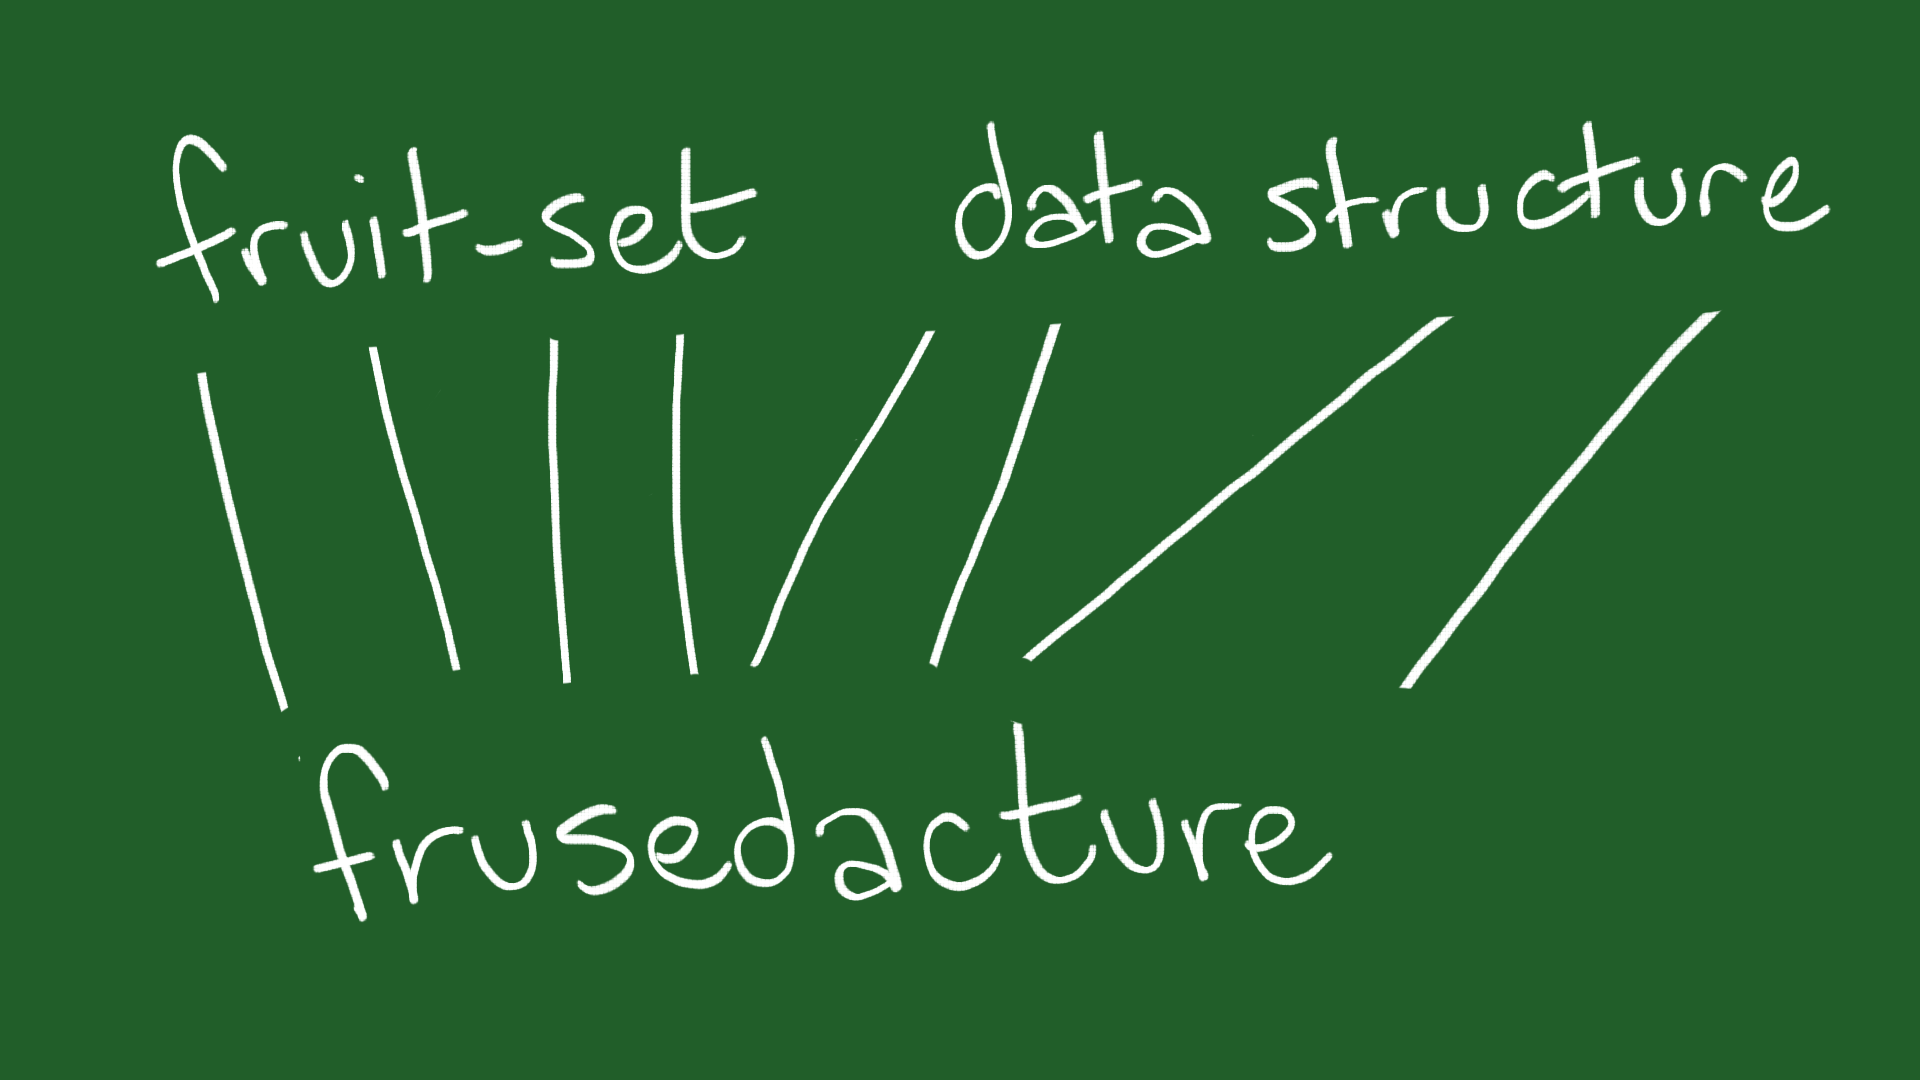 fruit-set data structure
frusedacture